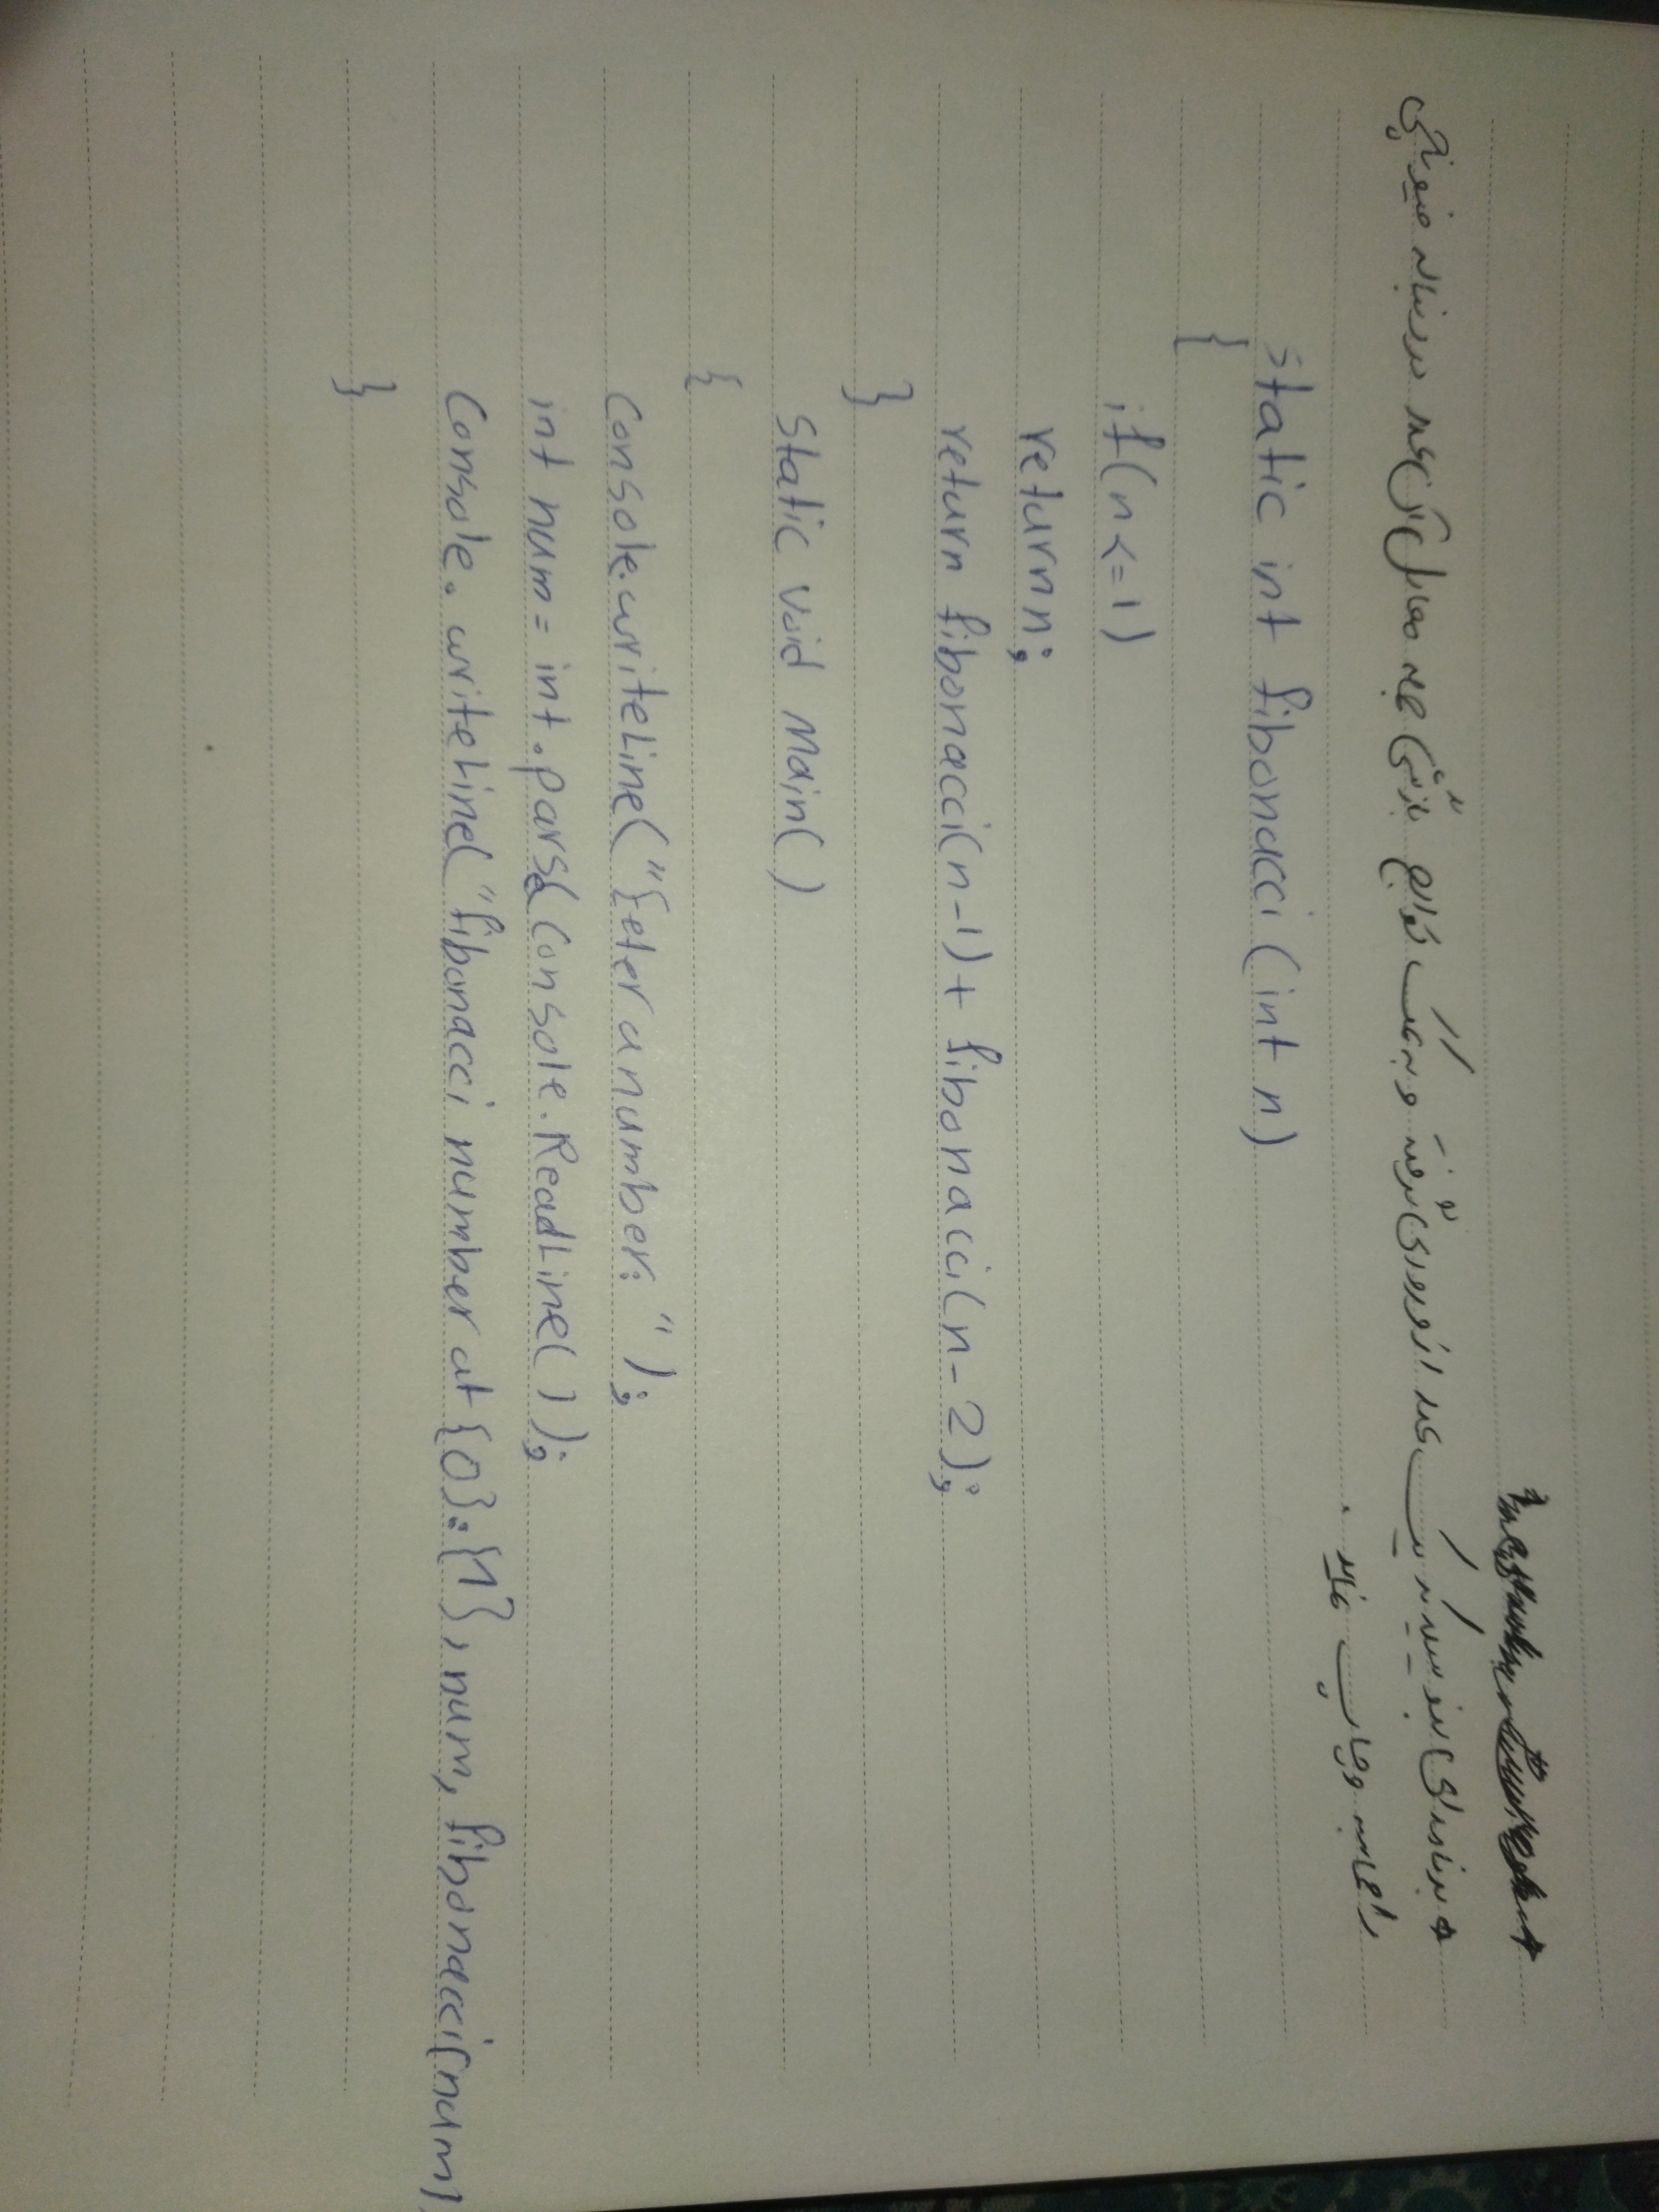 * برنامه ای بنویسید که یک عدد از ورودی گرفته و به کمک توابع بازگشتی جمله معادل آن در دنباله فیبوناچی
را محاسبه و چاپ نماید.
static int fibonacci (int n)
{
if(n<=1)
return n;
return fibonacci(n-1)+ fibonacci(n-2);
}
static void Main()
{
Console.writeLine("Eeter a number: ");
int num = int.parse(Console.ReadLine());
Console.writeLine("fibonacci number at {0}:{1}, num, fibonacci(num)
}